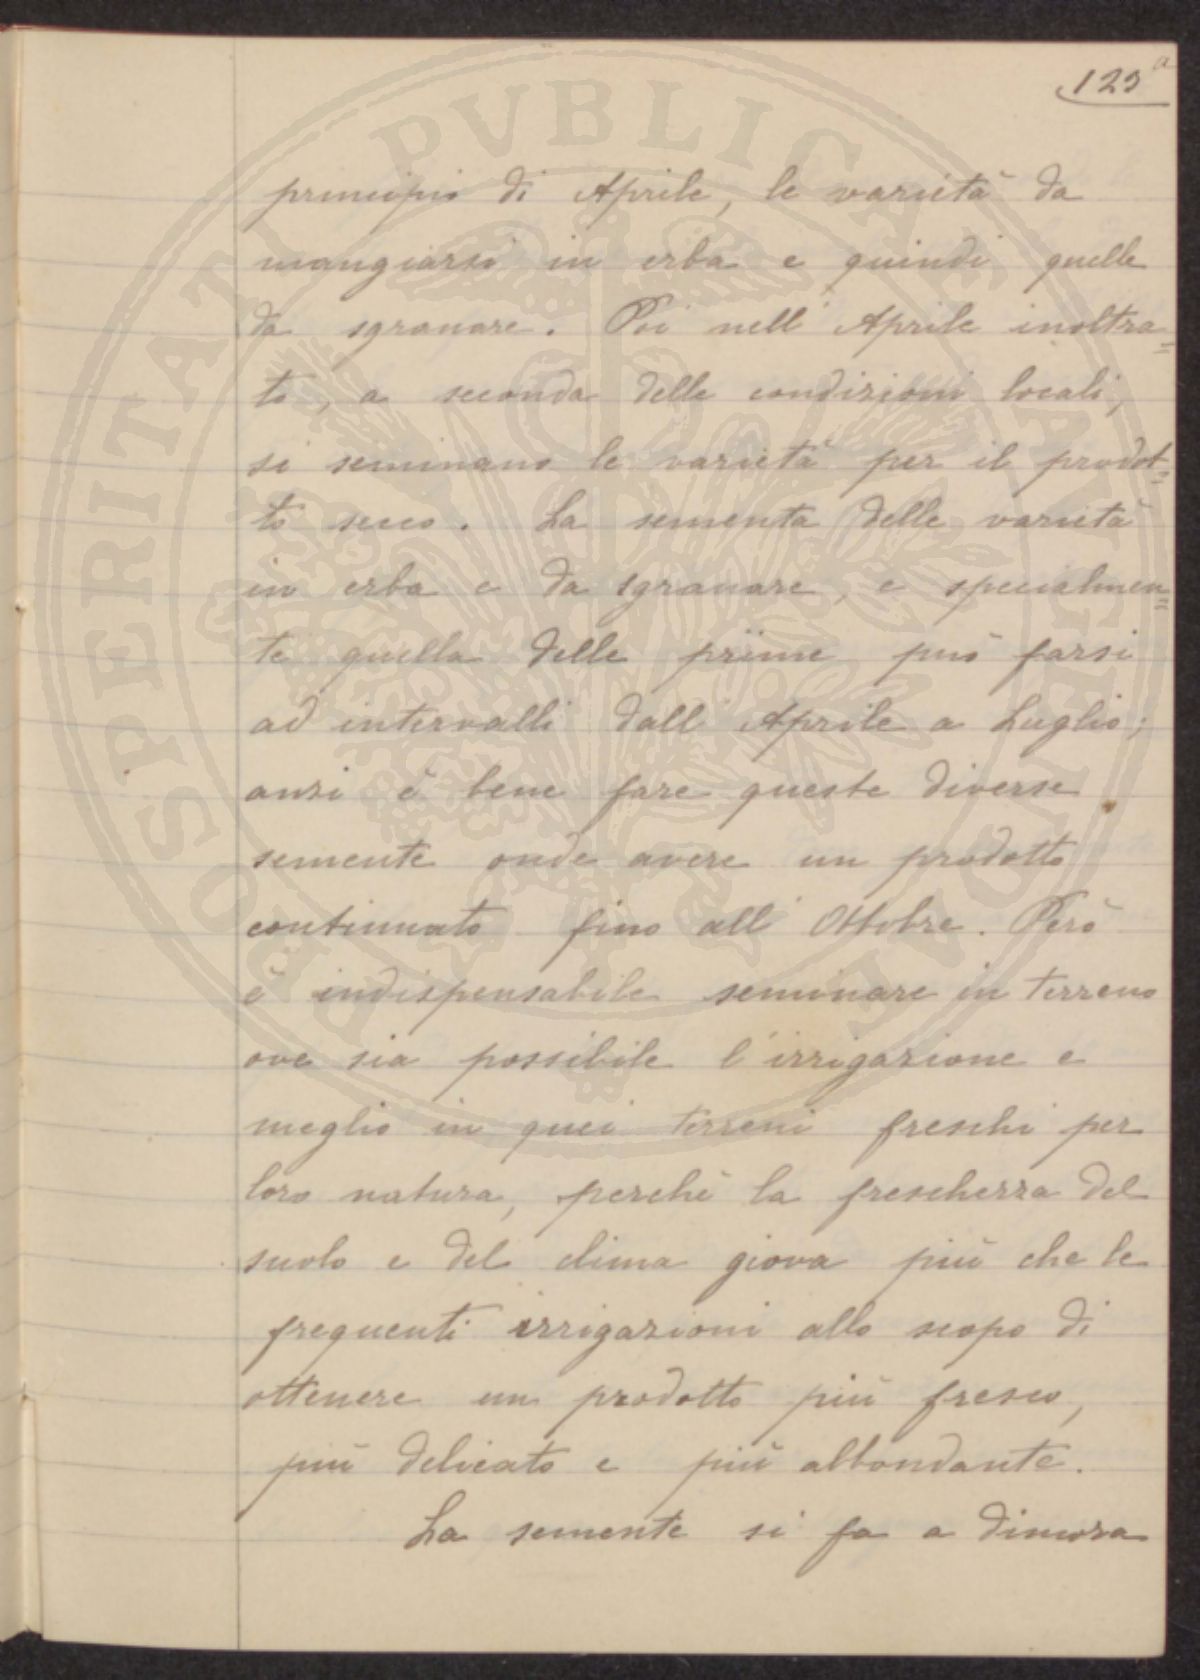 125 a
principio di Aprile, le varietà da
mangiarsi in erba e quindi quelle
da sgranare. Poi nell'Aprile inoltra=
to, a seconda delle condizioni locali,
si seminano le varietà per il prodot=
to secco. La sementa delle varietà
in erba e da sgranare, e specialmen=
te quella delle prime può farsi
ad intervalli dall'Aprile a Luglio;
anzi è bene fare queste diverse
semente onde avere un prodotto
continuato fino all'Ottobre. Però
è indispensabile seminare in terreno
ove sia possibile l'irrigazione e
meglio in quei terreni freschi per
loro natura, perchè la freschezza del
suolo e del clima giova più che le
frequenti irrigazioni allo scopo di
ottenere un prodotto più fresco,
più delicato e più abbondante.
La semente si fa a dimora
PROSPERITATI PVBLICAE AVGENDAE